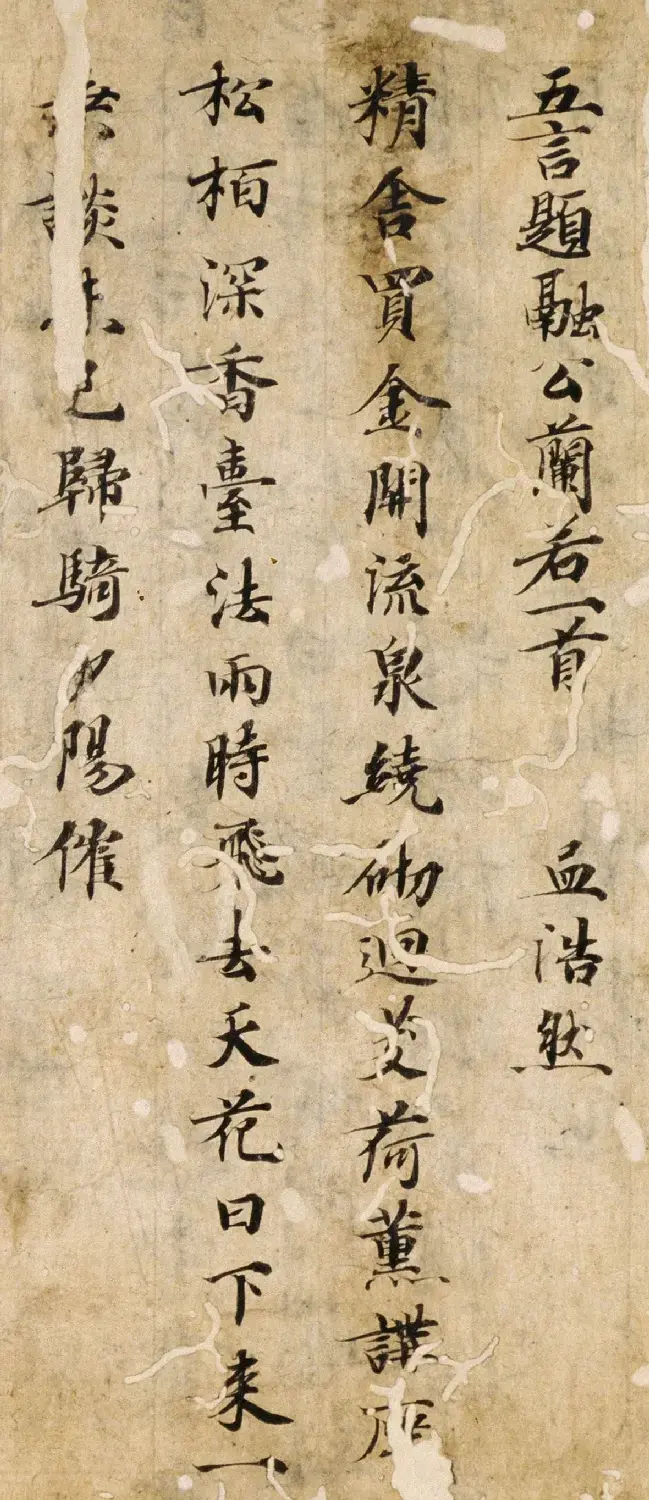 五言題融公蘭若一首 血浩然
精舍買金開流泉繞砌迴芰荷薰講座
松柏深香臺法雨時飛去天花日下來一
談未已歸騎夕陽催